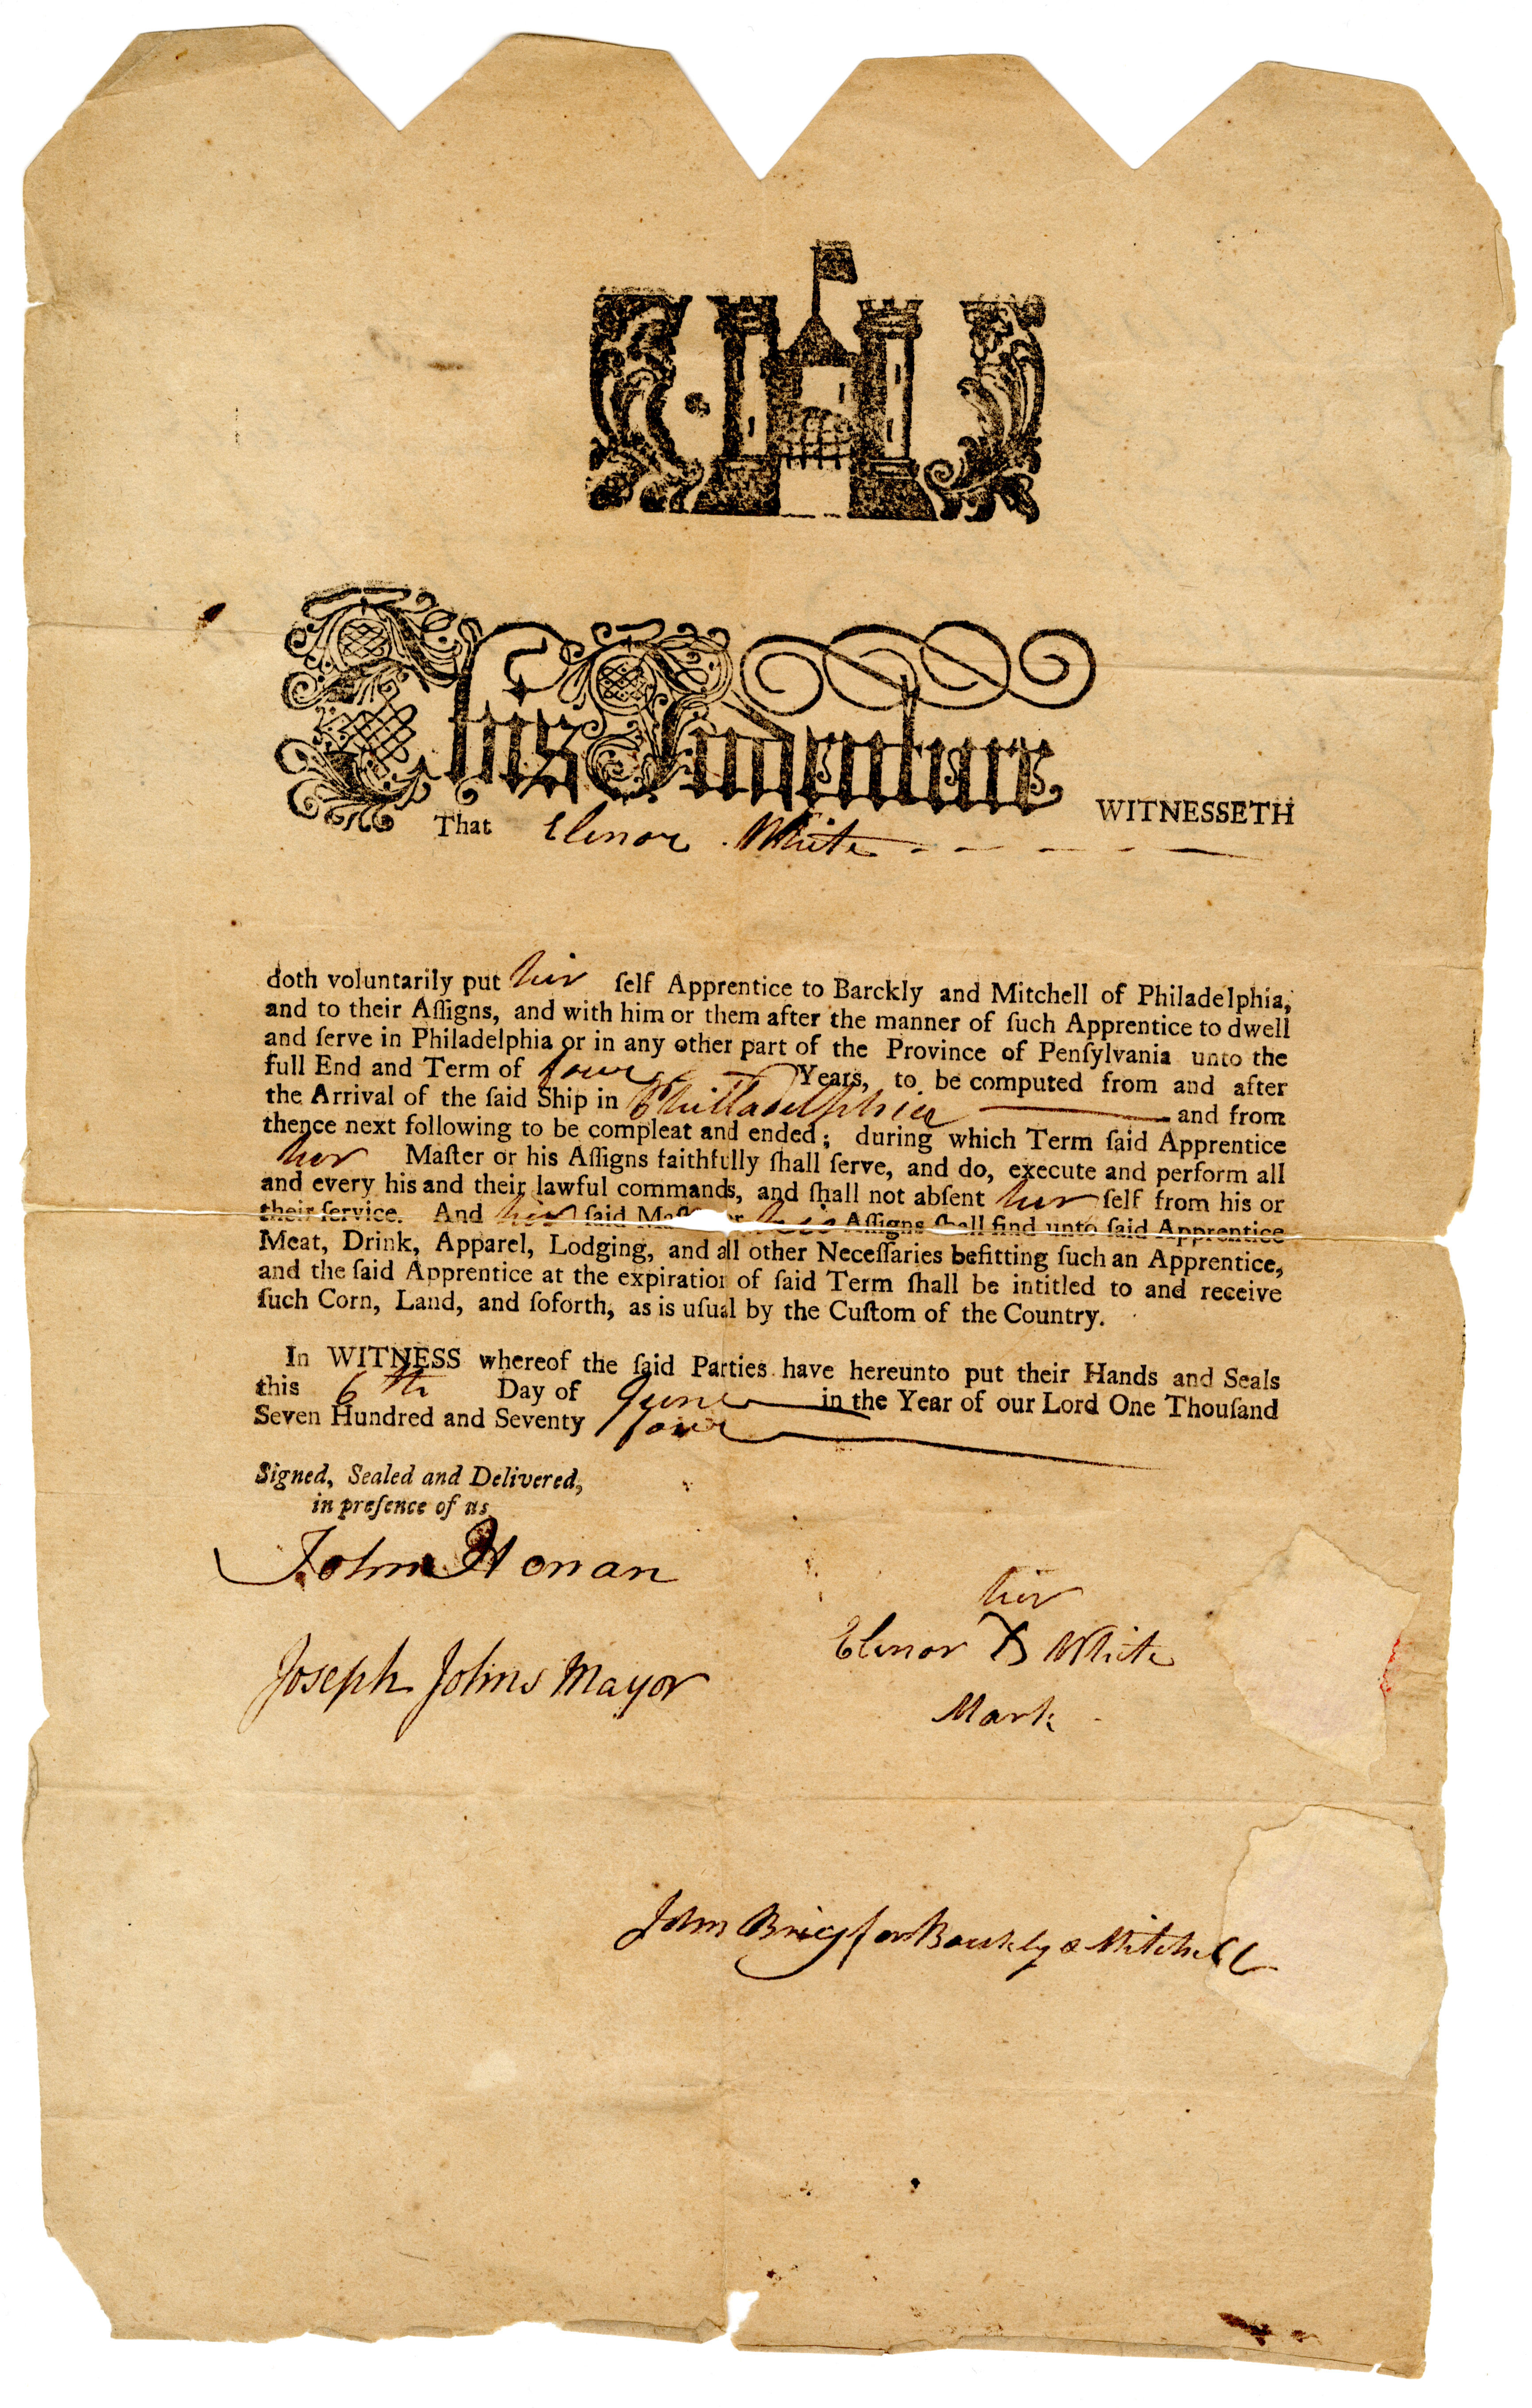 This Indenture WITNESSETH
That Elenor White
doth voluntarily put her ſelf Apprentice to Barckly and Mitchell of Philadelphia,
and to their Aſſigns, and with him or them after the manner of ſuch Apprentice to dwell
and ſerve in Philadelphia or in any other part of the Province of Penſylvania unto the
full End and Term of four Years, to be computed from and after
the Arrival of the ſaid Ship in Philladelphia and from
thence next following to be compleat and ended; during which Term ſaid Apprentice
her Maſter or his Aſſigns faithfully ſhall ſerve, and do, execute and perform all
and every his and their lawful commands, and ſhall not abſent her ſelf from his or
their ſervice. And her ſaid Maſter or his Aſſigns ſhall find unto ſaid Apprentice
Meat, Drink, Apparel, Lodging, and all other Neceſſaries befitting ſuch an Apprentice,
and the ſaid Apprentice at the expiration of ſaid Term ſhall be intitled to and receive
ſuch Corn, Land, and ſoforth, as is uſual by the Cuſtom of the Country.
In WITNESS whereof the ſaid Parties have hereunto put their Hands and Seals
this 6th Day of June in the Year of our Lord One Thouſand
Seven Hundred and Seventy four
Signed, Sealed and Delivered,
in preſence of us
John Honan
her
Elenor X White
Joseph Johns Mayor
Mark
John Brig for Barckly & Mitchell